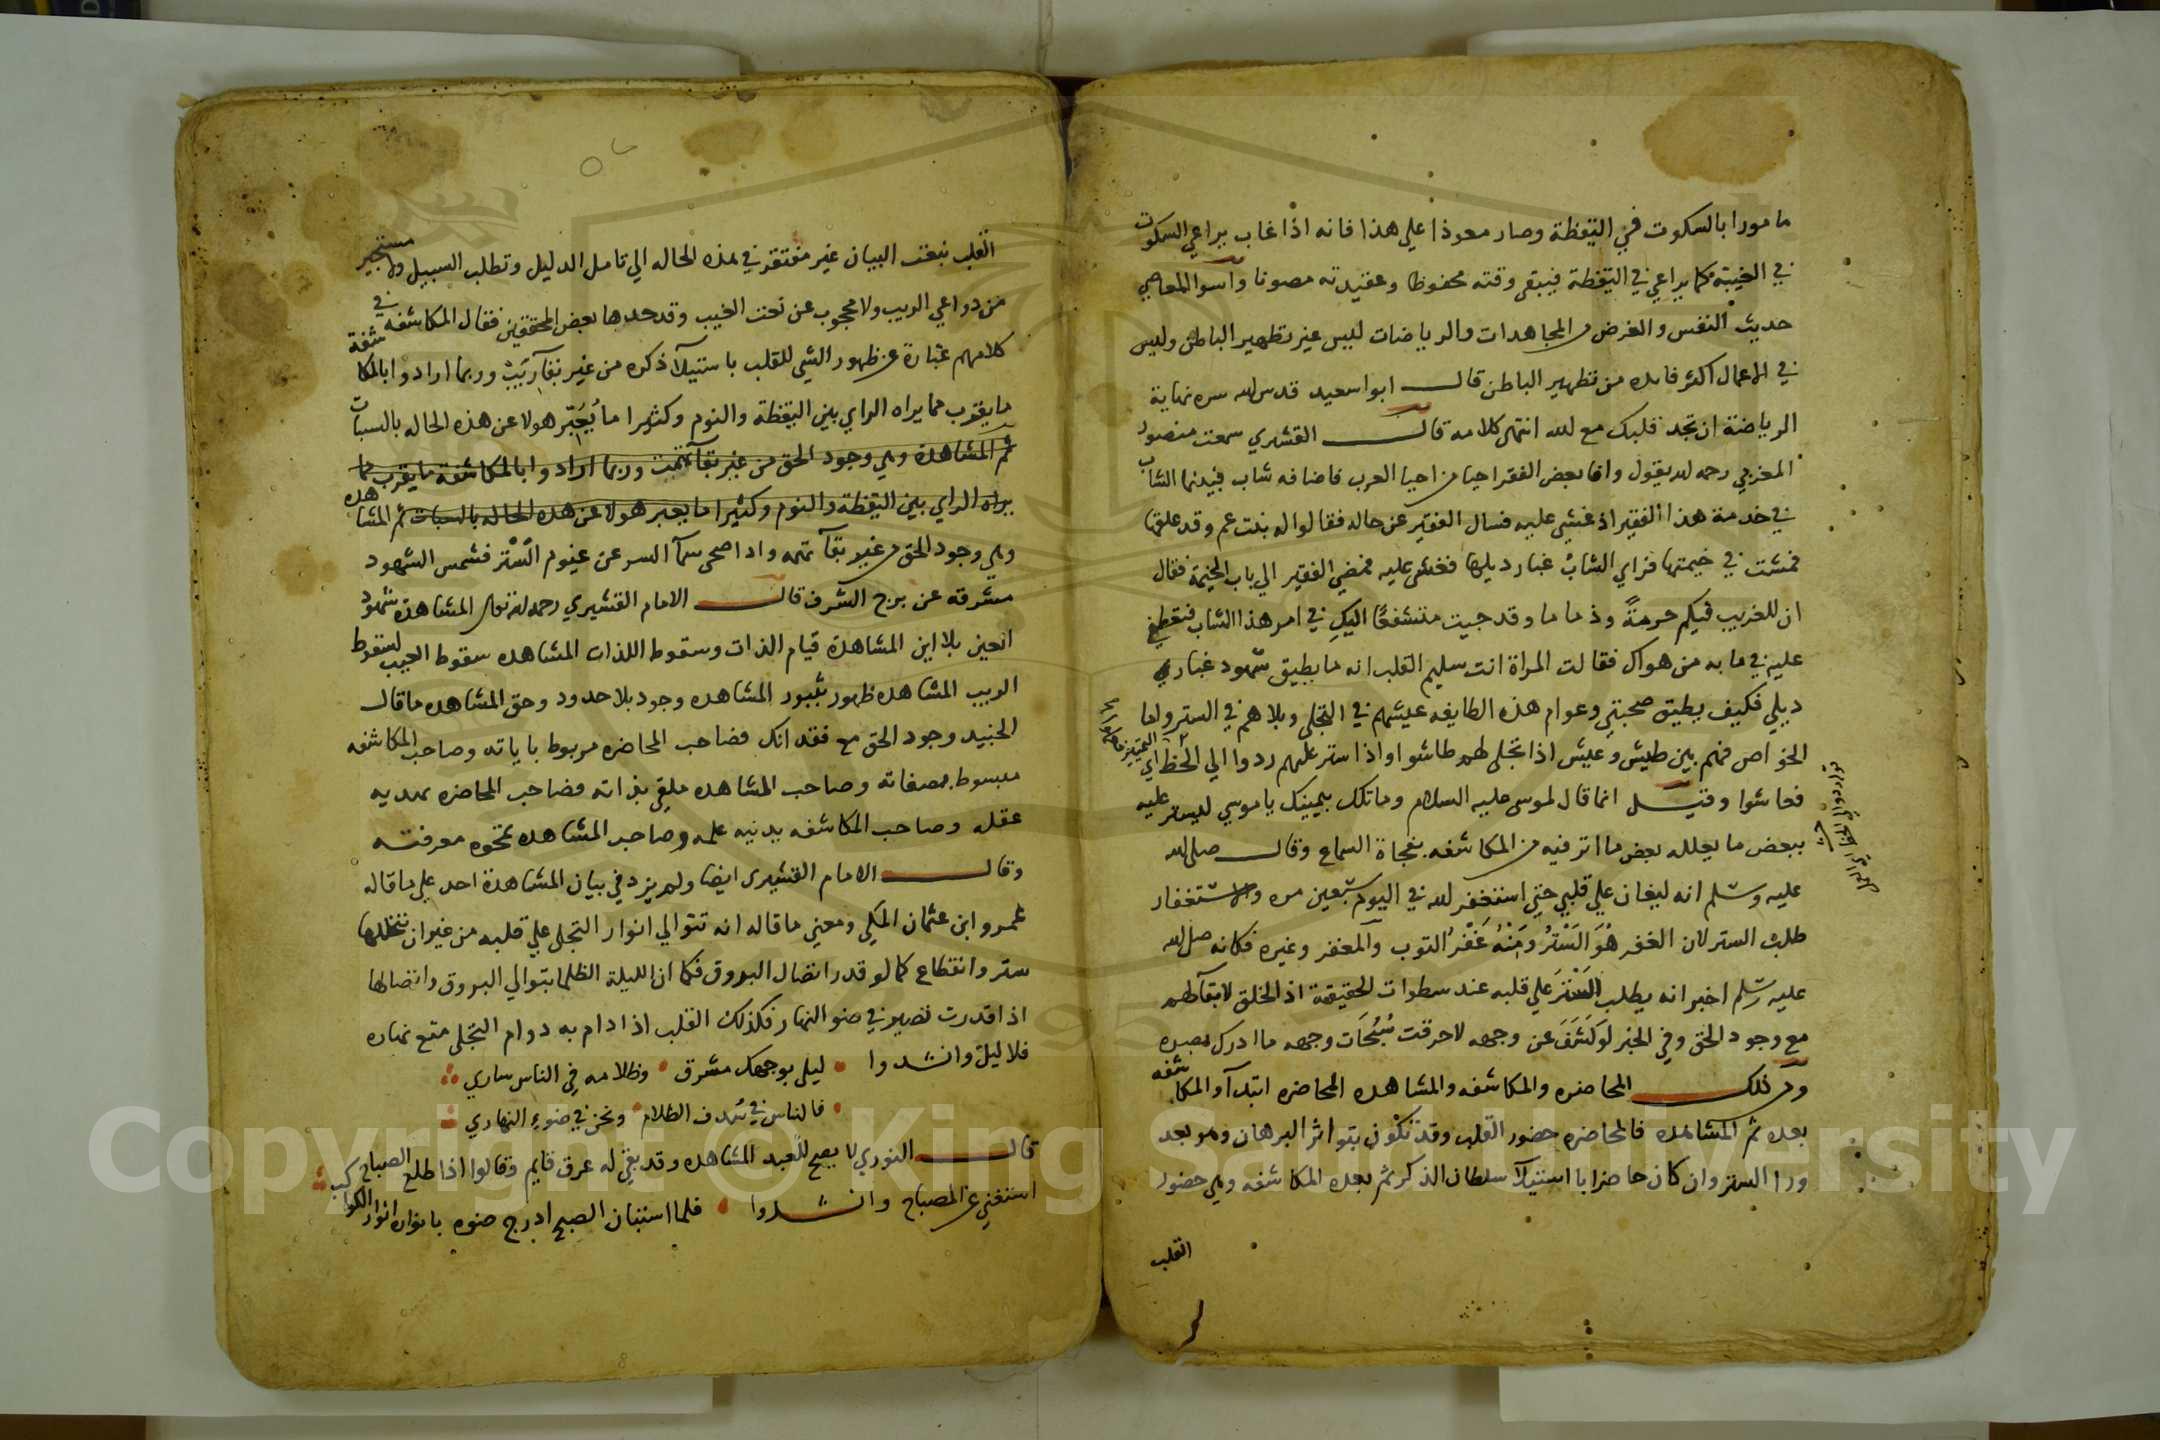 مامورا بالسكوت في اليقظة وصار معوذا علي هذا فانه اذا غاب يراعي السكوت
في الغيبة كما يراعي في اليقظة فيبقي وقته محفوظا وعقيدته مصونا واسوا المعاصي
حديث النفس والغرض من المجاهدات والرياضات ليس غير تطهير الباطن وليس
في الاعمال اكثر فايده من تطهير الباطن قال ابو اسعيد قدس الله سره نهاية
الرياضة ان تجد قلبك مع الله انتهي كلامه قال القشيري سمعت منصور
المغربي رحمه الله يقول وافا بعض الفقرا حيا من احيا العرب فاضافه شاب فبينما الشاب
في خدمة هذا الفقير اذ غشي عليه فسال الفقير عن حاله فقالوا له بنت عم وقد علقها
فمشت في خيمتها فراي الشاب غبار ذيلها فغشي عليه فمضي الفقير الي باب الخيمة فقال
ان للغريب فيكم حرمة وذماما وقد جيت متشفعا اليك في امر هذا الشاب فتعطفي
عليه في ما به من هواك فقالت المراة انت سليم القلب انه ما يطيق شهود غبار
ذيلي فكيف يطيق صحبتي وعوام هذه الطايفه عيشهم في التجلي وبلاهم في الستر واما
الخواص فهم بين طيش وعيش اذا تجلي لهم طاشوا واذا ستر عليهم ردوا الي الحظ اي
فعاشوا وقيل انما قال لموسي عليه السلام وما تلك بيمينك يا موسي ليستر عليه
ببعض ما يعلله بعض ما اثر فيه من المكاشفه بفجاة السماع وقال صلي الله
عليه وسلم انه ليغان علي قلبي حتي استغفر الله في اليوم سبعين مره والاستغفار
طلب الستر لان الغفر هو الستر ومنه غفر الثوب والمغفر وغيره فكانه صلي الله
عليه وسلم اخبر انه يطلب الستر علي قلبه عند سطوات الحقيقة اذ الخلق لا بقآ لهم
مع وجود الحق وفي الخبر لو كشف عن وجهه لاحرقت سبحات وجهه ما ادرك بصره
ومن ذلك المحاضره والمكاشفه والمشاهده المحاضره ابتدآ والمكاشفه
بعده ثم المشاهده فالمحاضره حضور القلب وقد تكون بتواثر البرهان وهو بعد
ورا الستر وان كان حاضرا باستيلآ سلطان الذكر ثم بعده المكاشفه وهي حضور
القلب
القلب بنعت البيان غير مفتقر في هذه الحاله الي تامل الدليل وتطلب السبيل ولا مستجير
من دواعي الريب ولا محجوب عن نعت الغيب وقد حدها بعض المحققين فقال المكاشفه في
كلامهم عبارة عن ظهور الشي للقلب باستيلآ ذكره من غير بقآ ريب وربما ارادوا بالمكاشفة
ما يقرب مما يراه الراي بين اليقظة والنوم وكثيرا ما يعبر هولا عن هذه الحاله بالسبات
ثم المشاهدة وهي وجود الحق من غير بقآ تهمت وربما ارادوا بالمكاشفة ما يقرب مما
يراه الراي بين اليقظة والنوم وكثيرا ما يعبر هولا عن هذه الحاله بالسبات ثم المشاهده
وهي وجود الحق من غير بقآ تهمه واذا اصحي سمآ السر عن غيوم الستر فشمس الشهود
مشرقه عن برج الشرف قال الامام القشيري رحمه الله تعالي المشاهدة شهود
العين بلا اين المشاهدة قيام الذات وسقوط اللذات المشاهده سقوط العيب لسقوط
الريب المشاهده ظهور بثبور المشاهده وجود بلا حدود وحق المشاهده ما قال
الجنيد وجود الحق مع فقدانك فصاحب المحاضره مربوط باياته وصاحب المكاشفه
مبسوط بصفاته وصاحب المشاهده ملقي بذاته فصاحب المحاضره يهديه
عقله وصاحب المكاشفه يدنيه علمه وصاحب المشاهده تمحوه معرفته
وقال الامام القشيري ايضا ولم يزد في بيان المشاهدة احد علي ما قاله
عمرو ابن عثمان المكي ومعني ما قاله انه تتوالي انوار التجلي علي قلبه من غير ان تتخللها
ستر وانقطاع كما لو قدر اتصال البروق فكما ان الليلة الظلما بتوالي البروق واتصالها
اذا قدرت تصير في ضو النهار فكذلك القلب اذا دام به دوام التجلي متع نهاره
فلا ليل وانشدوا ليلي بوجهك مشرق وظلامه في الناس ساري
فالناس في سدف الظلام ونحن في ضوء النهاري
قال النوري لا يصح للعبد المشاهده وقد بقي له عرق قايم وقالوا اذا طلع الصباح
استغني عن المصباح وانشدوا فلما استبان الصبح ادرج ضوه بانواره انوار الكواكب
Copyright © King Saud University